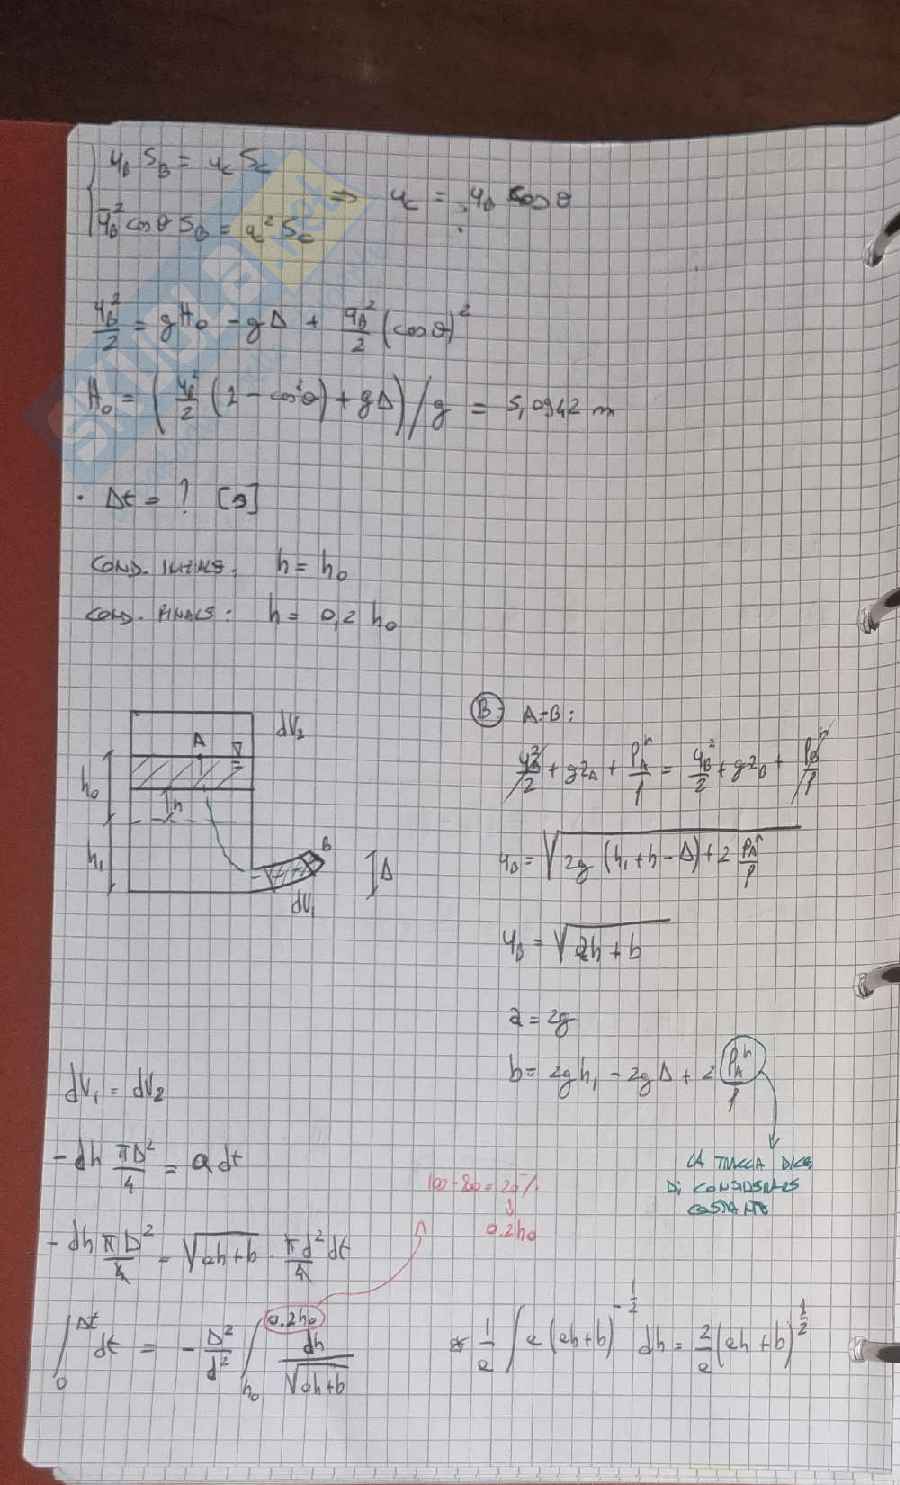 u_B S_B = u_c S_c
⇒ u_c = u_B cos θ
u_B² cos θ S_B = u_c² S_c
u_B²/2 = g H_0 - g Δ + u_B²/2 (cos θ)²
H_0 = ( u_B²/2 (1 - cos² θ) + g Δ ) / g = 5,0942 m
· Δt = ? [s]
COND. INIZIALE: h = h_0
COND. FINALE: h = 0,2 h_0
A
dV_2
h_0
h
h_1
B
Δ
dV_1
(B) A-B:
u_A²/2 + g z_A + P_A^n/ρ = u_B²/2 + g z_B + P_B^n/ρ
u_B = √(2g (h_1 + h - Δ) + 2 P_A^n/ρ)
u_B = √(ah + b)
a = 2g
b = 2g h_1 - 2g Δ + 2 P_A^n/ρ
LA TRACCIA DICE
DI CONSIDERARE
COSTANTE
dV_1 = dV_2
- dh πD²/4 = Q dt
100 - 80 = 20%
↓
0.2 h_0
- dh πD²/4 = √(ah + b) · πd²/4 dt
∫_0^Δt dt = - D²/d² ∫_h_0^0.2h_0 dh/√(ah + b)
* 1/a ∫ a (ah + b)^-1/2 dh = 2/a (ah + b)^1/2
SKUOLA.net